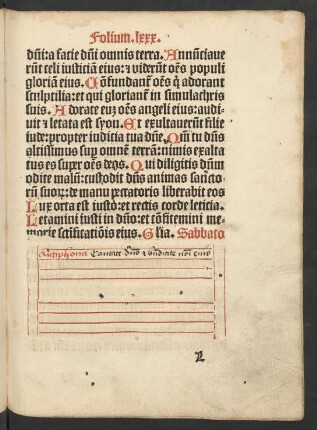 Folium. lxxx.
dñi: a facie dñi omnis terra. Annũciaue
rũt celi iusticiã eius: ⁊ viderũt oẽs populi
gloriã eius. Cõfundant᷑ oẽs q̃ adorant
sculptilia: et qui gloriant᷑ in simulachris
suis. Adorate eũ oẽs angeli eius: audi⸗
uit ⁊ letata est syon. Et exultauerũt filie
iude: propter iudicia tua dñe. Qm̃ tu dñs
altissimus sup omnẽ terrã: nimis exalta
tus es super oẽs deos. Qui diligitis dñm
odite malũ: custodit dñs animas sancto⸗
rũ suoꝝ: de manu pctãtoris liberabit eos
Lux orta est iusto: et rectis corde leticia.
Letamini iusti in dño: et cõfitemini me⸗
morie sctificatiõis eius. Glia. Sabbato
Antiphona Cantate dño ⁊ bñdicite noĩ eius